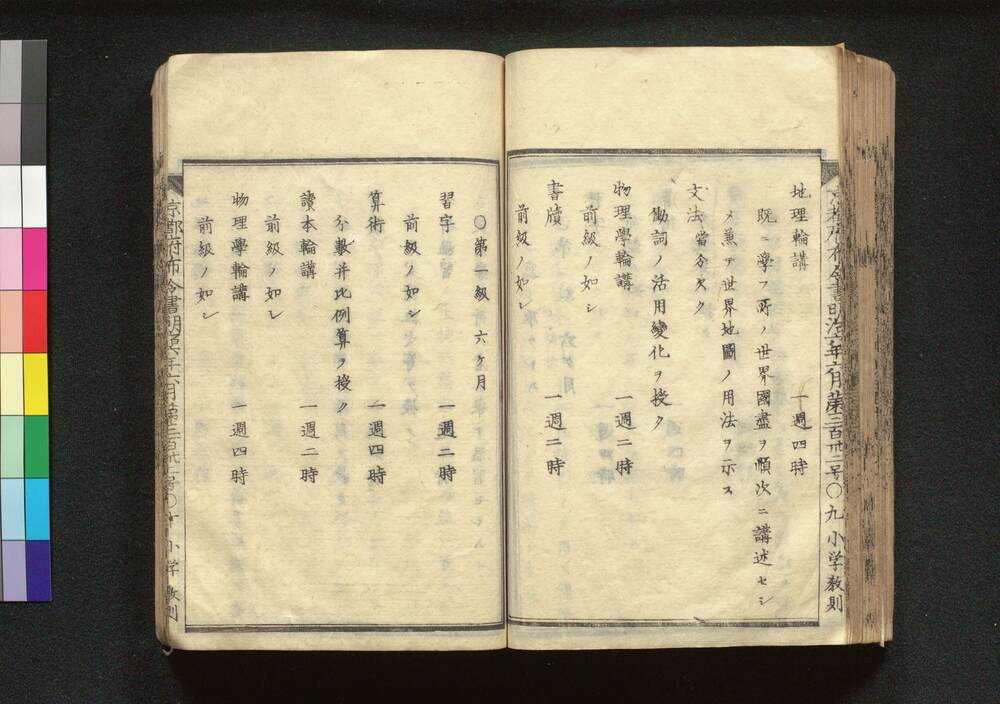 地理輪講 一週四時
既ニ學フ所ノ世界國盡ヲ順次ニ講述セシ
メ兼テ世界地圖ノ用法ヲ示ス
文法 當今欠ク
働詞ノ活用變化ヲ授ク
物理學輪講 一週二時
前級ノ如シ
書牘 一週二時
前級ノ如シ
京都府布令書明治 年六月第三百卅二号〇九 小学教則
〇第一級 六ケ月
習字 一週二時
前級ノ如シ
算術 一週四時
分數并比例算ヲ授ク
讀本輪講 一週二時
前級ノ如シ
物理學輪講 一週四時
前級ノ如シ
京都府布令書明治 年六月第三百卅二号〇十 小学教則